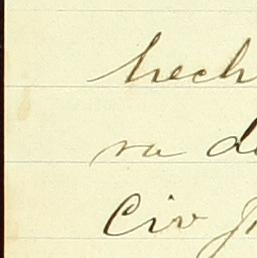 hech
ra de
Civ